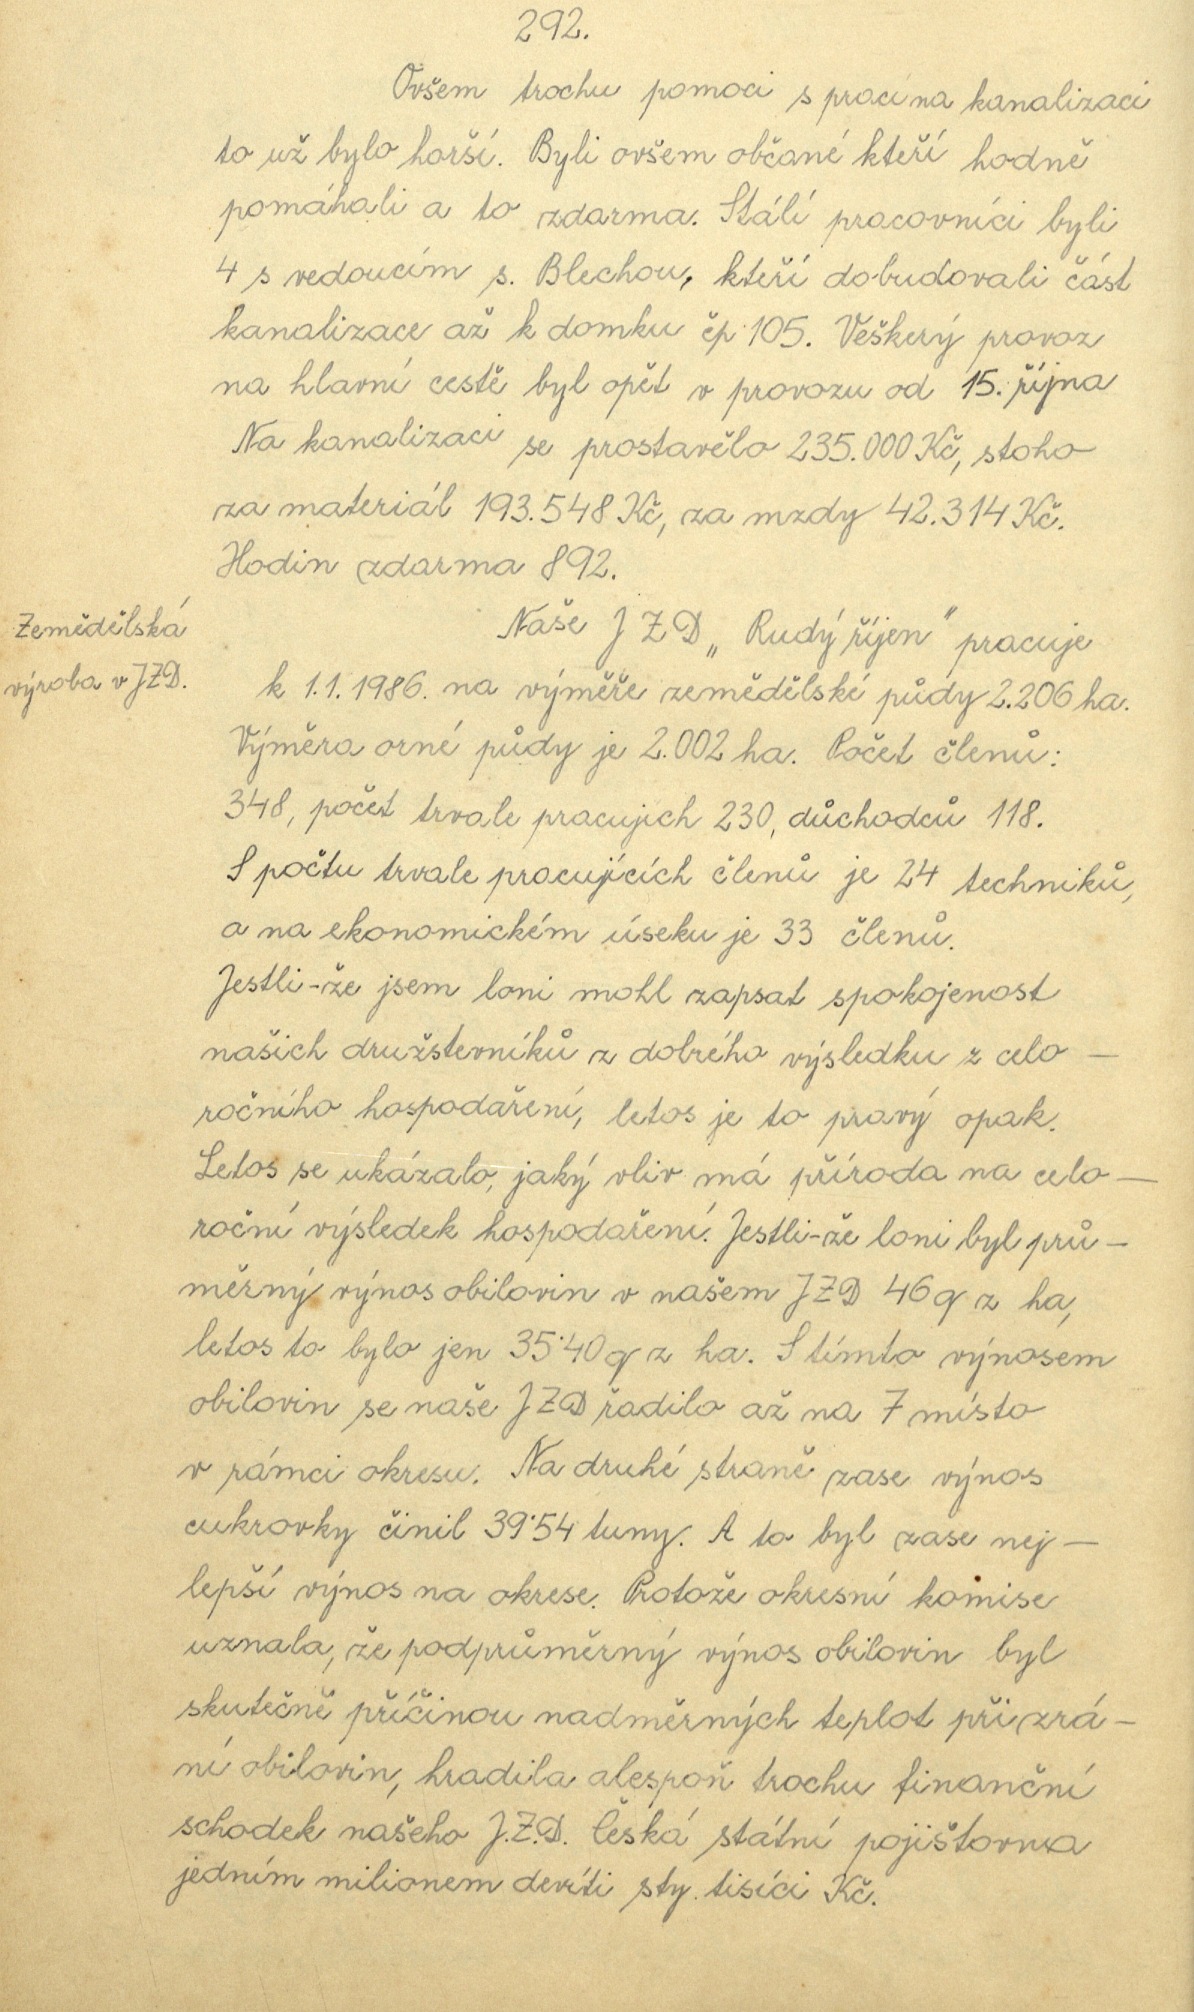 292.
Ovšem trochu pomoci s prací na kanalizaci
to už bylo horší. Byli ovšem občané kteří hodně
pomáhali a to zdarma. Stálí pracovníci byli
4 s vedoucím s. Blechou, kteří dobudovali část
kanalizace až k domku čp 105. Veškerý provoz
na hlavní cestě byl opět v provozu od 15. října
Na kanalizaci se prostavělo 235.000 Kč, stoho
za materiál 193.548 Kč, za mzdy 42.314 Kč.
Hodin zdarma 892.
Zemědělská
výroba v JZD.
Naše JZD „Rudý říjen" pracuje
k 1.1.1986. na výměře zemědělské půdy 2.206 ha.
Výměra orné půdy je 2.002 ha. Počet členů:
348, počet trvale pracujich 230, důchodců 118.
S počtu trvale pracujících členů je 24 techniků,
a na ekonomickém úseku je 33 členů.
Jestli-že jsem loni mohl zapsat spokojenost
našich družstevníků z dobrého výsledku z celo-
ročního hospodaření, letos je to pravý opak.
Letos se ukázalo, jaký vliv má příroda na celo-
roční výsledek hospodaření. Jestli-že loni byl prů-
měrný výnos obilovin v našem JZD 46 q z ha,
letos to bylo jen 35'40 q z ha. S tímto výnosem
obilovin se naše JZD řadilo až na 7 místo
v rámci okresu. Na druhé straně zase výnos
cukrovky činil 39'54 tuny. A to byl zase nej-
lepší výnos na okrese. Protože okresní komise
uznala, že podprůměrný výnos obilovin byl
skutečně příčinou nadměrných teplot při zrá-
ní obilovin, hradila alespoň trochu finanční
schodek našeho J.Z.D. Česká státní pojištovna
jedním milionem devíti sty tisíci Kč.